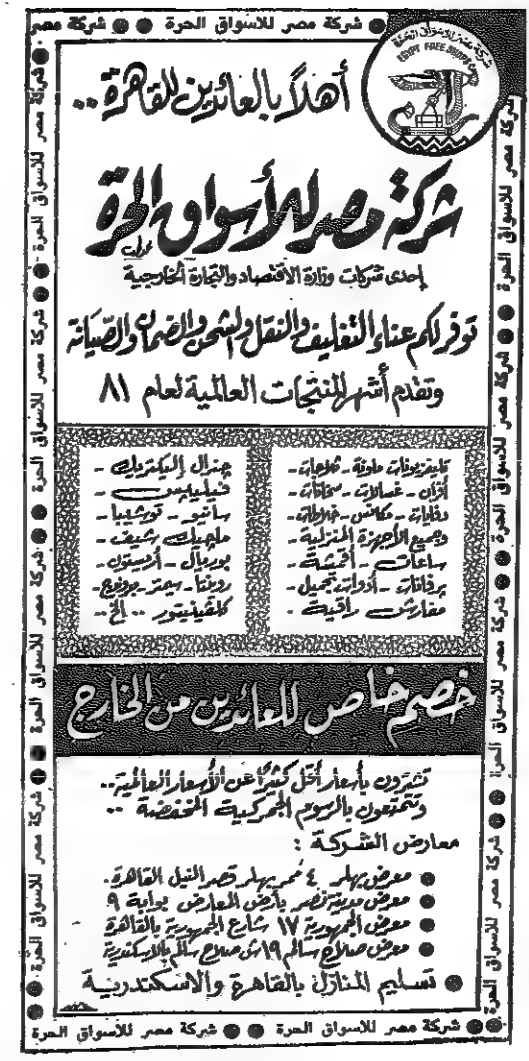 شركة مصر للاسواق الحرة ● ● شركة مصر
شركة مصر للاسواق الحرة
EGYPT FREE SHOPS CO.
أهلاً بالعائدين للقاهرة ..
شركة مصر للأسواق الحرة
إحدى شركات وزارة الاقتصاد والتجارة الخارجية
توفر لكم عناء التغليف والنقل والشحن والضمان والصيانة
وتقدم أشهر المنتجات العالمية لعام ٨١
تليفزيونات ملونة - ثلاجات -
أفران - غسالات - سخانات -
دفايات - مكانس - خلاطات -
وجميع الأجهزة المنزلية -
ساعات - أقمشة -
برفانات - أدوات تجميل -
مفارش راقية .
چنرال إليكتريك -
فيليبس -
سانيو - توشيبا -
ماچيك شيف -
يونيڤرسال - أريستون -
روينتا - سيمنز -
كلفينيتور .. الخ ..
خصم خاص للعائدين من الخارج
تشترون بأسعار أقل كثيرًا عن الأسعار العالمية ..
وتتمتعون بالرسوم الجمركية المخفضة ..
معارض الشركة :
● معرض بهلر ٤ ممر بهلر قصر النيل القاهرة .
● معرض مدينة نصر بأرض المعارض بوابة ٩
● معرض الجمهورية ١٧ شارع الجمهورية بالقاهرة
● معرض صلاح سالم ١٩ ش صلاح سالم بالاسكندرية
● تسليم المنازل بالقاهرة والاسكندرية
شركة مصر للاسواق الحرة ● ● شركة مصر للاسواق الحرة ● ● شركة مصر للاسواق الحرة